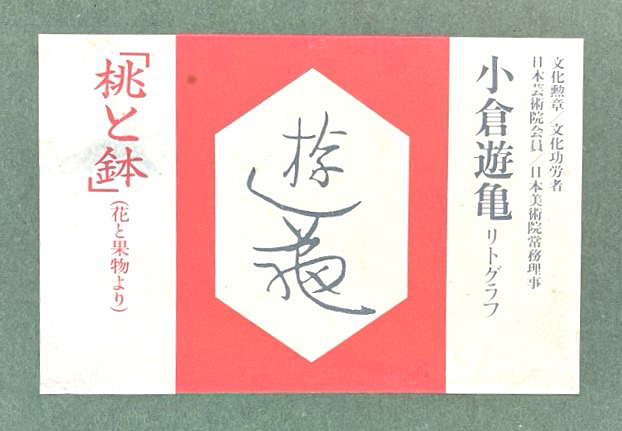 文化勲章／文化功労者
日本芸術院会員／日本美術院常務理事
小倉遊亀 リトグラフ
遊亀
「桃と鉢」
（花と果物より）